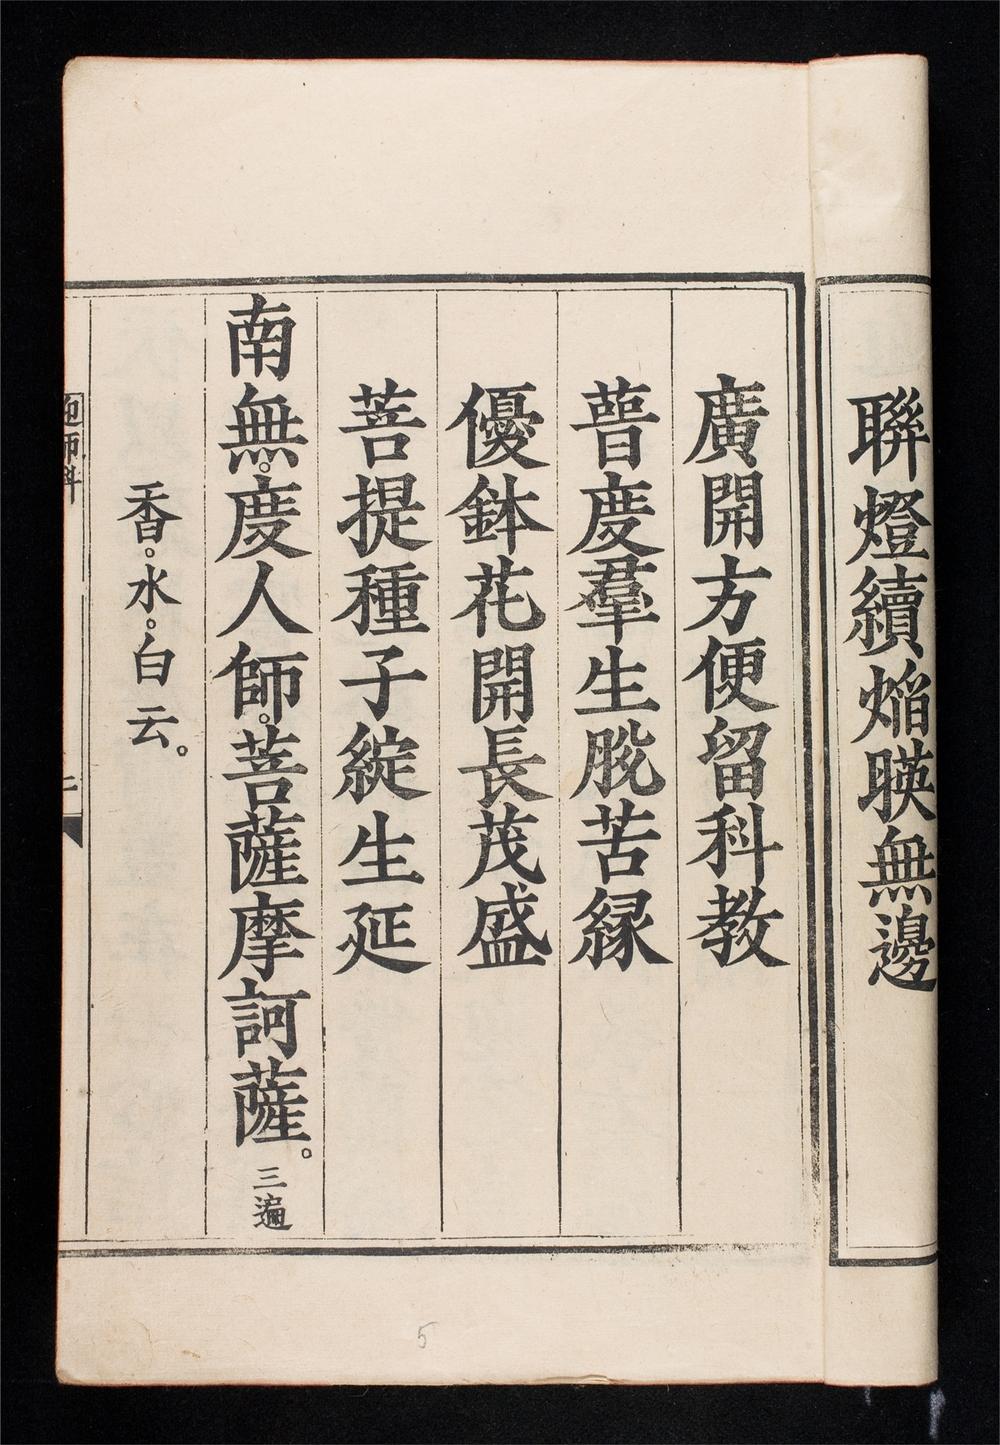 聯燈續焔暎無邊
廣開方便留科教
普度羣生脫苦縁
優鉢花開長茂盛
菩提種子綻生延
南無。度人師。菩薩摩訶薩。三遍
香。水。白云。
5